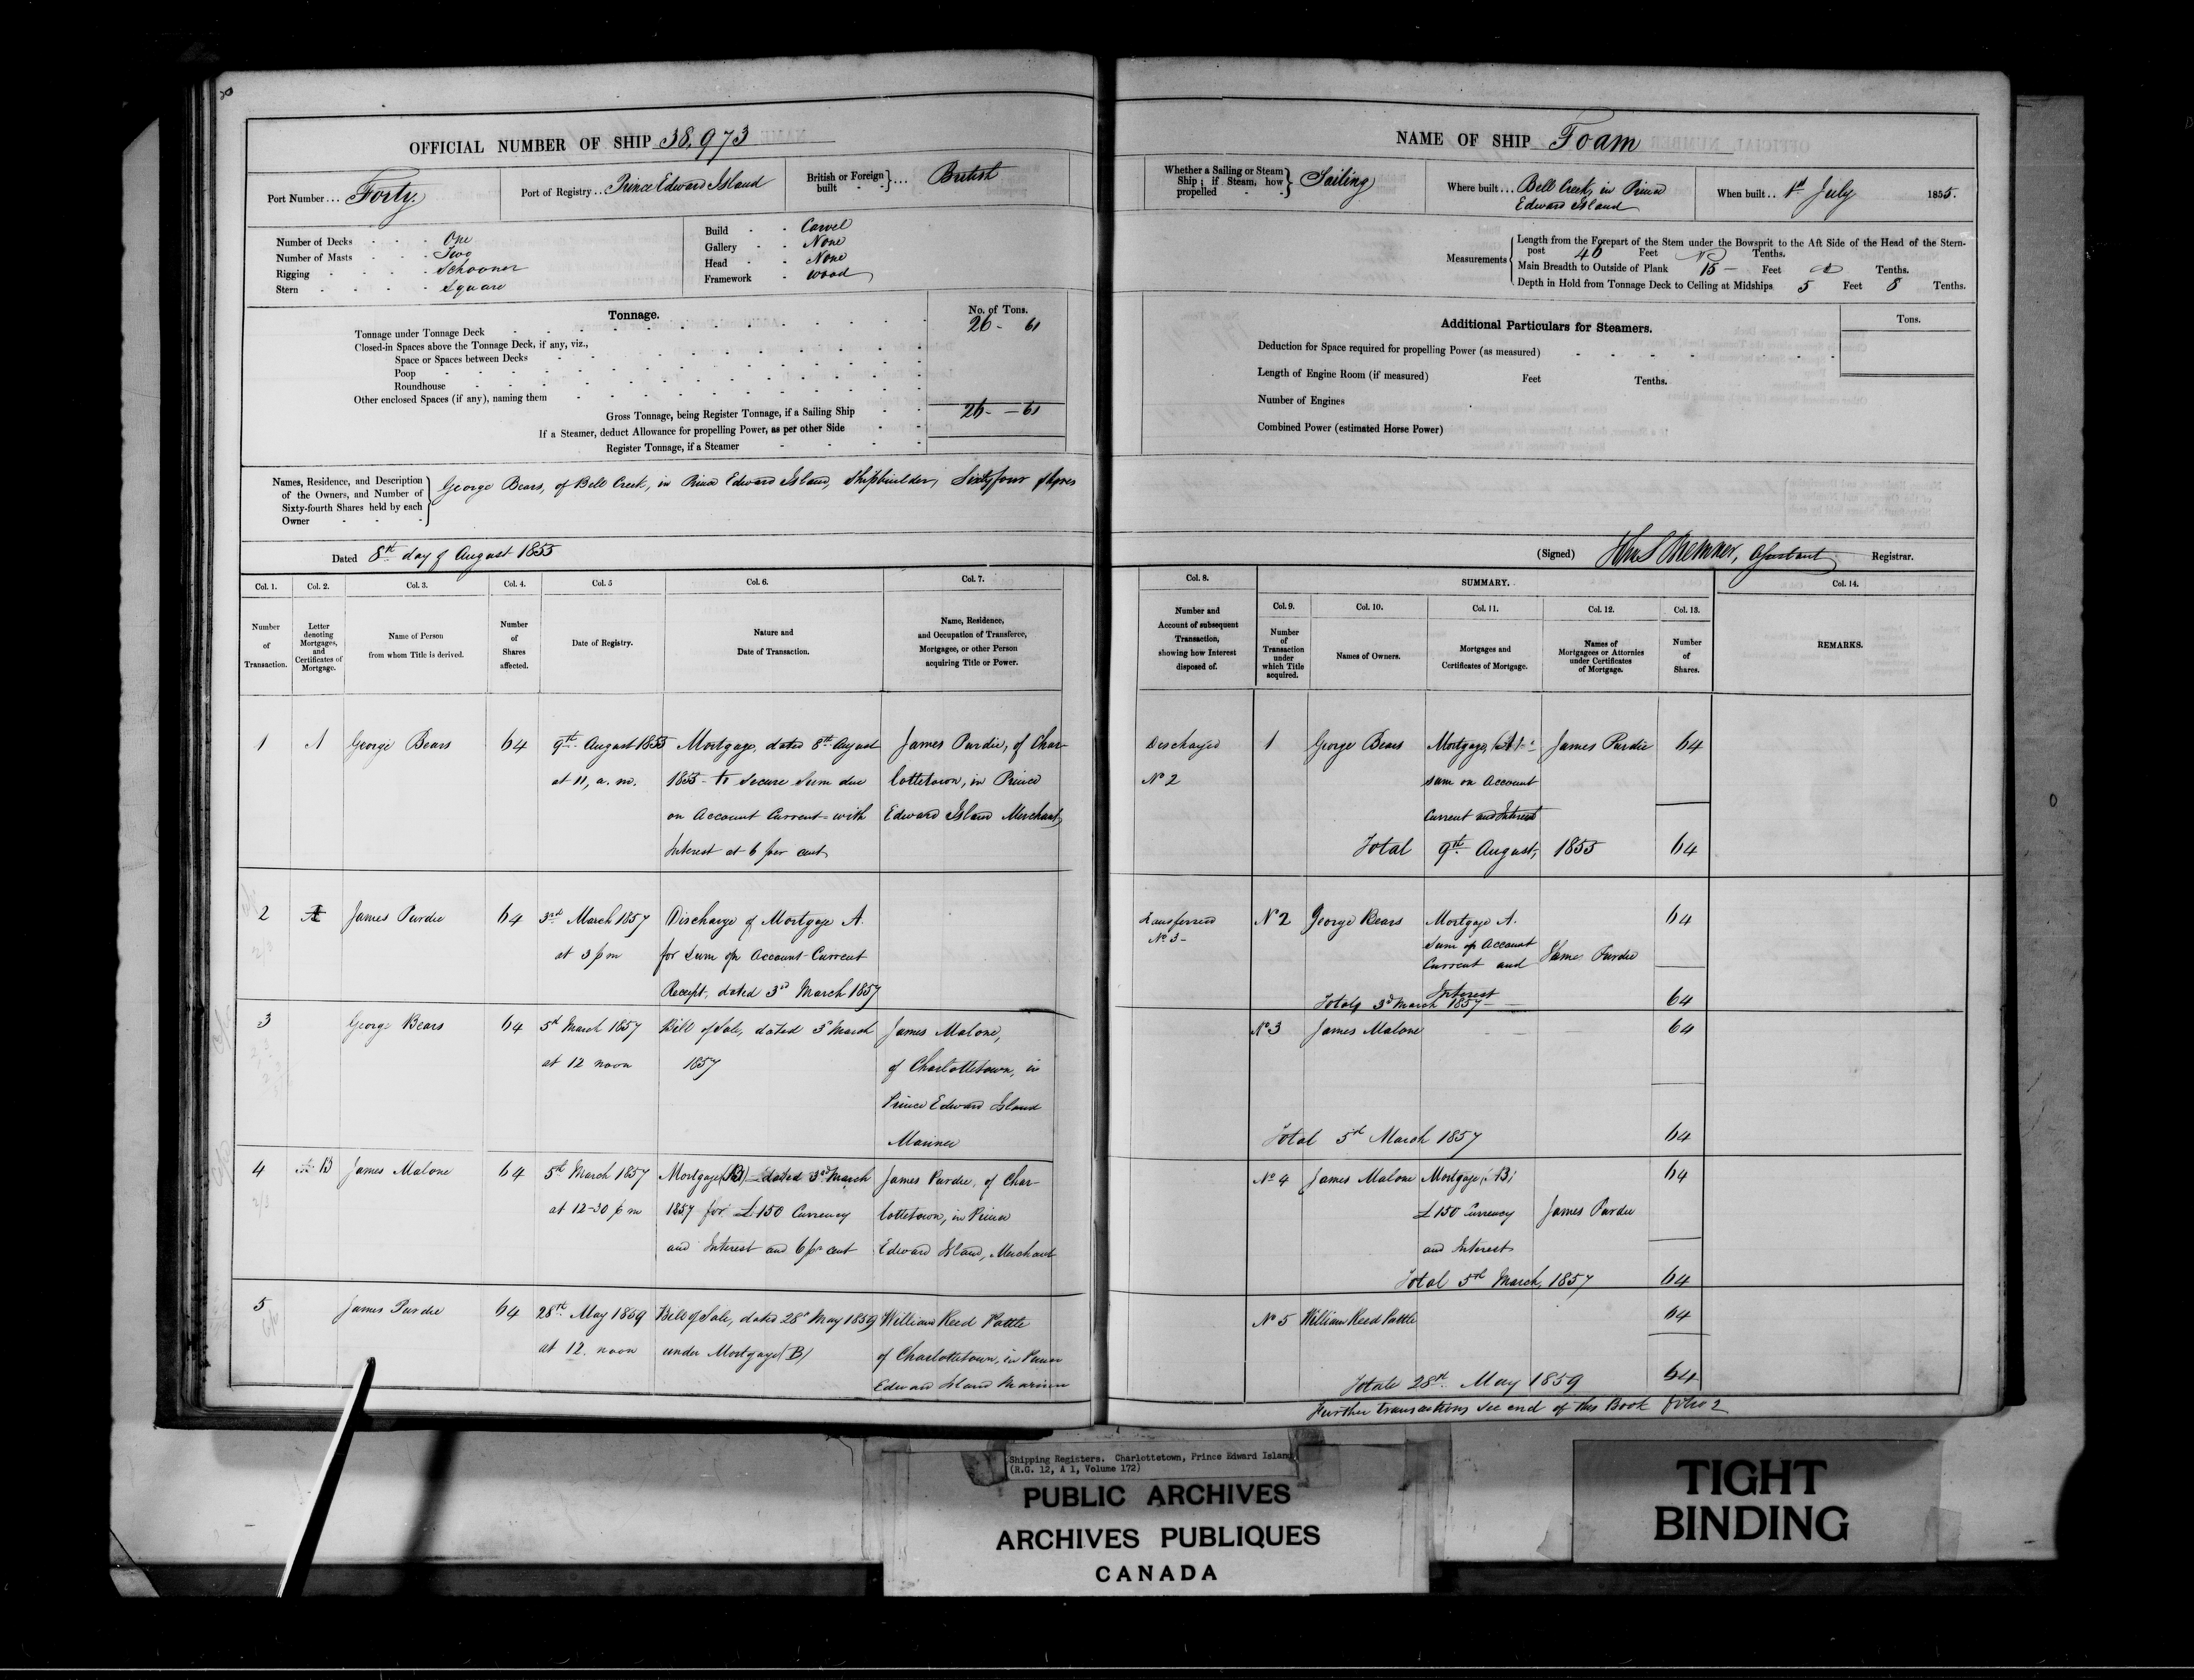 OFFICIAL NUMBER OF SHIP 38,973
Port Number... Forty.
Port of Registry... Prince Edward Island
British or Foreign built } ... British
Number of Decks - - - One
Number of Masts - - - Two
Rigging - - - Schooner
Stern - - - Square
Build - - Carvel
Gallery - - None
Head - - None
Framework - Wood
Tonnage.
No. of Tons.
Tonnage under Tonnage Deck 26 - 61
Closed-in Spaces above the Tonnage Deck, if any, viz.,
Space or Spaces between Decks
Poop
Roundhouse
Other enclosed Spaces (if any), naming them
Gross Tonnage, being Register Tonnage, if a Sailing Ship 26 - 61
If a Steamer, deduct Allowance for propelling Power, as per other Side
Register Tonnage, if a Steamer
Names, Residence, and Description
of the Owners, and Number of
Sixty-fourth Shares held by each
Owner
George Bears, of Bell Creek, in Prince Edward Island, Shipbuilder, Sixtyfour Shares
Dated 8th day of August 1855
Col. 1. Number of Transaction.
Col. 2. Letter denoting Mortgages, and Certificates of Mortgage.
Col. 3. Name of Person from whom Title is derived.
Col. 4. Number of Shares affected.
Col. 5 Date of Registry.
Col. 6. Nature and Date of Transaction.
Col. 7. Name, Residence, and Occupation of Transferee, Mortgagee, or other Person acquiring Title or Power.
1 A George Bears 64 9th August 1855 Mortgage, dated 8th August James Purdie, of Char-
at 11, a. m. 1855 - to secure Sum due lottetown, in Prince
on Account Current with Edward Island Merchant
Interest at 6 per cent
2 A James Purdie 64 3rd March 1857 Discharge of Mortgage A.
at 3 pm for Sum on Account-Current
Receipt, dated 3d March 1857
3 George Bears 64 5th March 1857 Bill of Sale, dated 3d March James Malone,
at 12 noon 1857 of Charlottetown, in
Prince Edward Island
Mariner
4 B James Malone 64 5th March 1857 Mortgage (B) dated 3rd March James Purdie, of Char-
at 12-30 pm 1857 for £150 Currency lottetown, in Prince
and Interest and 6 pr cent Edward Island, Merchant
5 James Purdie 64 28th May 1859 Bill of Sale, dated 28th May 1859 William Reed Pattle
at 12. noon under Mortgage (B) of Charlottetown, in Prince
Edward Island Mariner
NAME OF SHIP Foam
Whether a Sailing or Steam
Ship; if Steam, how
propelled } Sailing
Where built... Bell Creek, in Prince
Edward Island
When built.. 1st July 1855.
Measurements
Length from the Forepart of the Stem under the Bowsprit to the Aft Side of the Head of the Stern-
post 46 Feet Tenths.
Main Breadth to Outside of Plank 15 - Feet Tenths.
Depth in Hold from Tonnage Deck to Ceiling at Midships 5 Feet 8 Tenths.
Additional Particulars for Steamers.
Tons.
Deduction for Space required for propelling Power (as measured)
Length of Engine Room (if measured) Feet Tenths.
Number of Engines
Combined Power (estimated Horse Power)
(Signed) Bremner, Assistant Registrar.
Col. 8. Number and Account of subsequent Transaction, showing how Interest disposed of.
SUMMARY.
Col. 9. Number of Transaction under which Title acquired.
Col. 10. Names of Owners.
Col. 11. Mortgages and Certificates of Mortgage.
Col. 12. Names of Mortgagees or Attornies under Certificates of Mortgage.
Col. 13. Number of Shares.
Col. 14. REMARKS.
Discharged 1 George Bears Mortgage, (A) James Purdie 64
No 2 Sum on Account
Current and Interest
Total 9th August, 1855 64
Transferred No 2 George Bears Mortgage A. 64
No 3 - Sum on Account
Current and James Purdie
Interest
Total, 3d March 1857 - 64
No 3 James Malone 64
Total 5th March 1857 64
No 4 James Malone Mortgage (B) 64
£150 Currency James Purdie
and Interest
Total 5th March, 1857 64
No 5 William Reed Pattle 64
Total 28th. May 1859 64
Further transactions see end of this Book folio 2
Shipping Registers. Charlottetown, Prince Edward Island
(R.G. 12, A 1, Volume 172)
PUBLIC ARCHIVES
ARCHIVES PUBLIQUES
CANADA
TIGHT
BINDING